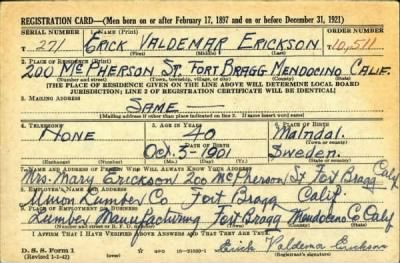 REGISTRATION CARD—(Men born on or after February 17, 1897 and on or before December 31, 1921)
SERIAL NUMBER 1. NAME (Print) ORDER NUMBER
T 271 ERICK VALDEMAR ERICKSON 10,511
(First) (Middle) (Last)
2. PLACE OF RESIDENCE (Print)
200 MCPHERSON ST. FORT BRAGG MENDOCINO CALIF.
(Number and street) (Town, township, village, or city) (County) (State)
[THE PLACE OF RESIDENCE GIVEN ON THE LINE ABOVE WILL DETERMINE LOCAL BOARD
JURISDICTION; LINE 2 OF REGISTRATION CERTIFICATE WILL BE IDENTICAL]
3. MAILING ADDRESS
SAME
[Mailing address if other than place indicated on line 2. If same insert word same]
4. TELEPHONE 5. AGE IN YEARS 6. PLACE OF BIRTH
NONE 40 Malndal.
DATE OF BIRTH (Town or county)
Oct. 5-1901 Sweden.
(Exchange) (Number) (Mo.) (Day) (Yr.) (State or country)
7. NAME AND ADDRESS OF PERSON WHO WILL ALWAYS KNOW YOUR ADDRESS
Mrs. Mary Erickson 200 McPherson St Fort Bragg Calif
8. EMPLOYER'S NAME AND ADDRESS
Union Lumber Co Fort Bragg Calif.
Lumber Manufacturing Fort Bragg Mendocino Co. Calif
I AFFIRM THAT I HAVE VERIFIED ABOVE ANSWERS AND THAT THEY ARE TRUE.
D. S. S. Form 1
(Revised 1-1-42) (over) GPO 16-21630-1 Erick Valdemar Erickson
(Registrant's signature)